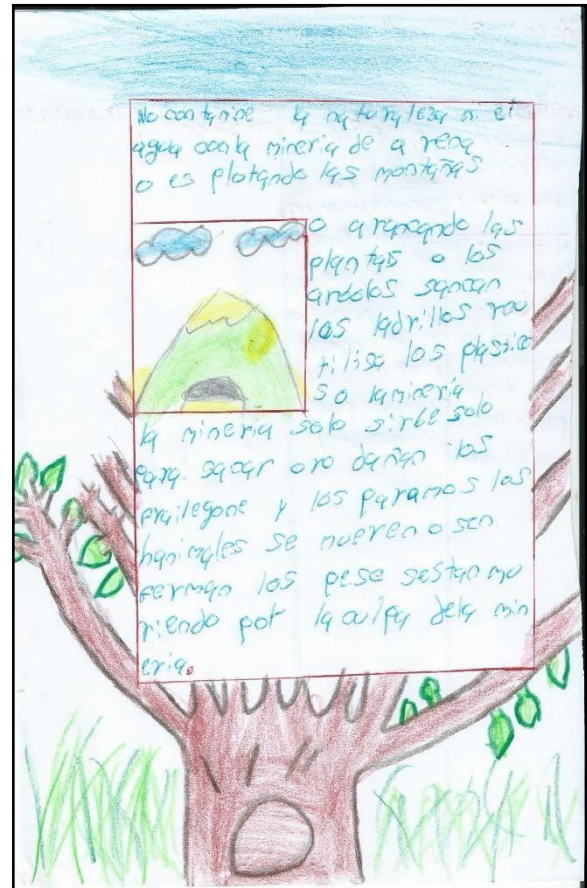 No contamine la naturaleza ni el
agua con la mineria de arena
o es plotando las montañas
o arrancando las
plantas o los
arboles sancan
los ladrillos reu
tilisa los plastico
s o la mineria
la mineria solo sirbe solo
para sacar oro dañan los
frailegone y los paramos los
hanimales se mueren o sen
ferman los pese sestan mu
riendo por la culpa dela min
eria.